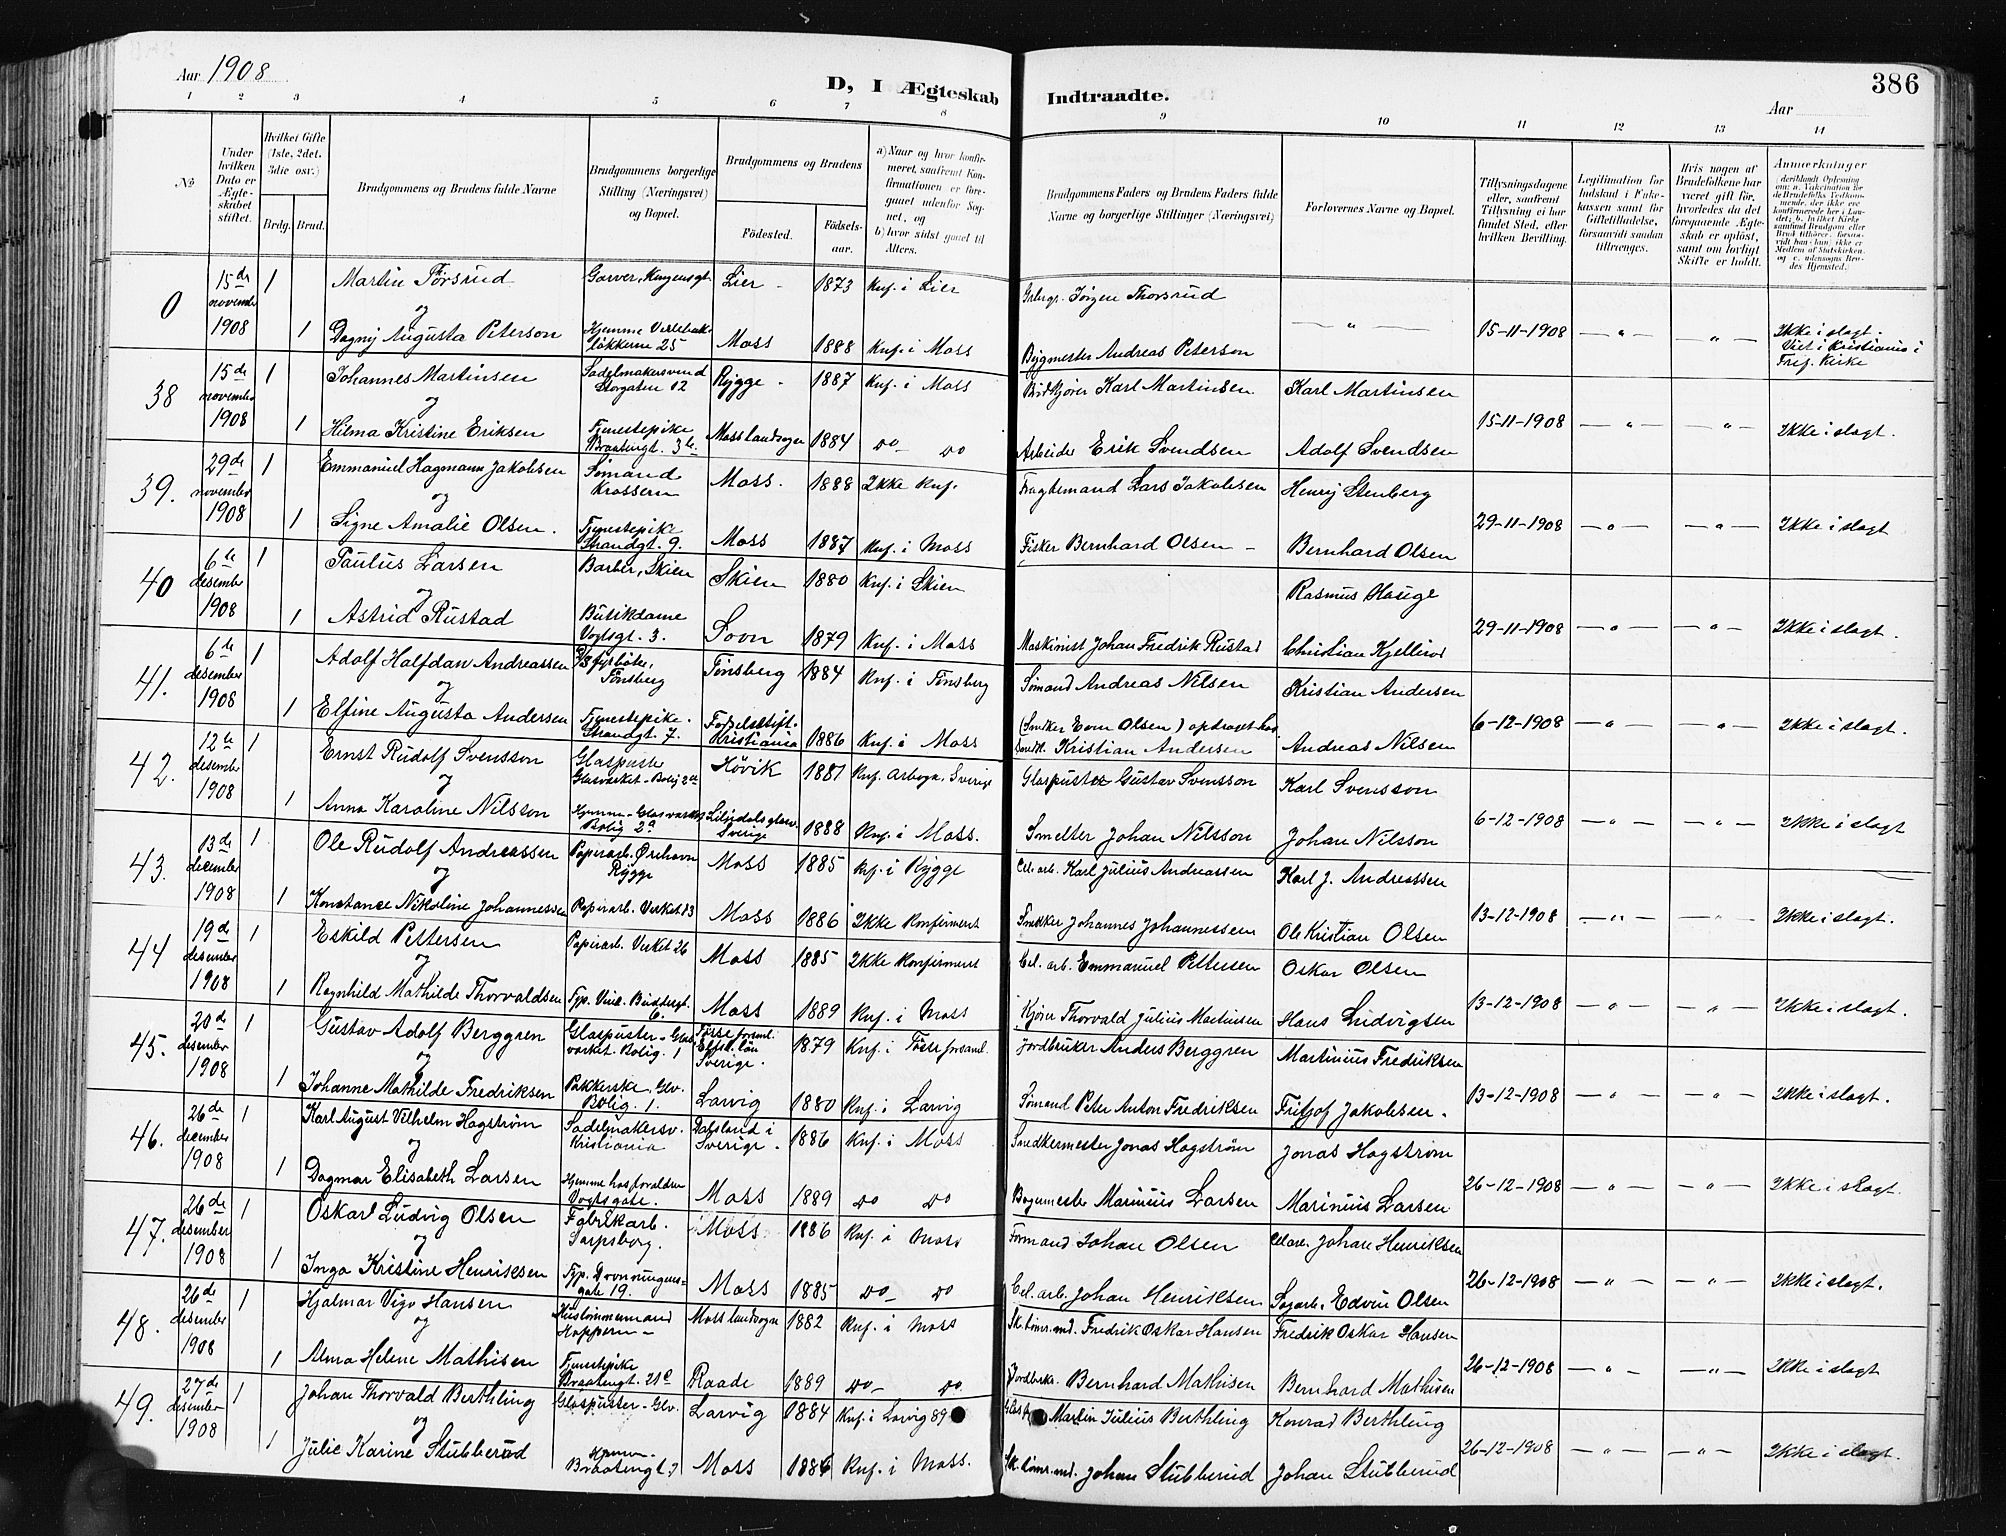 Aar 1908
D, I Ægteskab Indtraadte.
386
Aar
1 2 3 4 5 6 7 8 9 10 11 12 13 14
No
Under hvilken Dato er Ægteskabet stiftet.
Hvilket Gifte (1ste, 2det, 3die osv.)
Brdg. Brud.
Brudgommens og Brudens fulde Navne
Brudgommens borgerlige Stilling (Næringsvei) og Bopæl.
Brudgommens og Brudens
Fødested.
Fødselsaar.
a) Naar og hvor konfirmeret, saafremt Konfirmationen er foregaaet udenfor Sognet, og
b) hvor sidst gaaet til Alters.
Brudgommens Faders og Brudens Faders fulde Navne og borgerlige Stillinger (Næringsvei)
Forlovernes Navne og Bopæl.
Tillysningsdagene eller, saafremt Tillysning ei har fundet Sted, efter hvilken Bevilling.
Legitimation for Indskud i Enkekassen samt for Giftetilladelse, forsaavidt saadan tiltrænges.
Hvis nogen af Brudefolkene har været gift før, hvorledes da det foregaaende Ægteskab er opløst, samt om lovligt Skifte er holdt.
Anmærkninger
0 15de november 1908 1 Martin Thorsrud Garver, Kongensgt. Lier - 1873 Knf. i Lier Jørgen Thorsrud
og
1 Dagny Augusta Peterson Hjemme Verlebakløkkerne 25 Moss 1888 Knf. i Moss Bygmester Andreas Peterson — " — 15-11-1908 — " — — " — Ikke i slagt. Viet i Kristiania i Frif. Kirke
38 15de november 1908 1 Johannes Martinsen Sadelmakersvend Storgaten 12 Rygge - 1887 Knf. i Moss Karl Martinsen Karl Martinsen
og
1 Hilma Kristine Eriksen Tjenestepike Braatengt. 3 b. Moss landsogn 1884 do do Arbeider Erik Svendsen Adolf Svendsen 15-11-1908 — " — — " — Ikke i slagt.
39. 29de november 1908 1 Emmanuel Hagmann Jakobsen Sømand Krossern Moss. 1888 Ikke Knf. Fragtemand Lars Jakobsen Henry Stenberg
og
1 Signe Amalie Olsen. Tjenestepike Strandgt. 9. Moss 1887 Knf. i Moss Fisker Bernhard Olsen - Bernhard Olsen 29-11-1908 — " — — " — Ikke i slagt
40 6te desember 1908 1 Paulus Larsen Barber, Skien Skien 1880 Knf. i Skien Rasmus Hauge
og
1 Astrid Rustad Butikdame Vogtsgt. 3. Sovn 1879 Knf. i Moss Maskinist Johan Fredrik Rustad Christian Kjellerød 29-11-1908 — " — — " — Ikke i slagt.
41. 6te desember 1908 1 Adolf Halfdan Andreassen fyrbøter, Tønsberg Tønsberg 1884 Knf. i Tønsberg Sømand Andreas Nilsen Kristian Andersen
og
1 Elfine Augusta Andersen Tjenestepike. Strandgt. 7. Fødselsstift. Kristiania 1886 Knf. i Moss (Snedker Even Olsen) opdraget hos Kristian Andersen Andreas Nilsen 6-12-1908 — " — — " — Ikke i slagt.
42. 12te desember 1908 1 Ernst Rudolf Svensson Glaspuster Glasverket-Bolig 2 Høvik 1881 Knf. Arboga, Sverige Glaspuster Gustav Svensson Karl Svensson
og
1 Anna Karoline Nilsson Hjemme-Glasverkets Bolig 2 Liljedals glasv. Sverige 1888 Knf. i Moss. Smelter Johan Nilsson Johan Nilsson 6-12-1908 — " — — " — Ikke i slagt
43. 13de december 1908 1 Ole Rudolf Andreassen Papirarb. Ørehavn Rygge Moss 1885 Knf. i Rygge Cel. arb. Karl Julius Andreassen Karl J. Andreassen
og
1 Konstance Nikoline Johannessen Papirarb. Verket 13 Moss 1886 Ikke Konfirmert Snekker Johannes Johannessen Ole Kristian Olsen 13-12-1908 — " — — " — Ikke i slagt.
44 19de desember 1908 1 Eskild Pettersen Papirarb. Verket 26 Moss 1885 Ikke Konfirmert Cel. arb. Emmanuel Pettersen Oskar Olsen
og
1 Ragnhild Mathilde Thorvaldsen 6. Moss 1889 Knf. i Moss Kjører Thorvald Julius Martinsen Hans Ludvigsen 13-12-1908 — " — — " — Ikke i slagt.
45. 20de desember 1908 1 Gustav Adolf Berggren Glaspuster-Glasverket-Bolig. 1 Tösse forsaml. Elfsb. län Sverige. 1879 Knf. i Tösse forsaml. Jordbruker Anders Berggren Martinius Fredriksen
og
1 Johanne Mathilde Fredriksen Pakkerske, Glv. Bolig. 1. Larvig 1880 Knf. i Larvig Sømand Peter Anton Fredriksen Fritjof Jakobsen. 13-12-1908 — " — — " — Ikke i slagt.
46. 26de december 1908 1 Karl August Vilhelm Hagstrøm Sadelmakersv. Kristiania Dalsland i Sverige. 1886 Knf. i Moss Snedkermester Jonas Hagstrøm Jonas Hagstrøm
og
1 Dagmar Elisabeth Larsen Hjemme hos forældre Vogtsgate. Moss 1889 do do Marinius Larsen Marinius Larsen 26-12-1908 — " — — " — Ikke i slagt.
47. 26de desember 1908 1 Oskarl Ludvig Olsen Fabrikarb. Sarpsborg. Moss 1886 Knf. i Moss Formand Johan Olsen Johan Henriksen
og
1 Inga Kristine Henriksen Typ. Dronningensgate 19. Moss 1885 do do Cel. arb. Johan Henriksen Sagarb. Edvin Olsen 26-12-1908 — " — — " — Ikke i slagt.
48. 26de desember 1908 1 Hjalmar Vigo Hansen Hustømmermand Hoppern - Moss landsogn 1882 Knf. i Moss Sk. tømr. md. Fredrik Oskar Hansen Fredrik Oskar Hansen
og
1 Alma Helene Mathisen Tjenestepike Braatengt. 21 c Raade 1889 do do Jordbruker Bernhard Mathisen Bernhard Mathisen 26-12-1908 — " — — " — Ikke i slagt
49. 27de desember 1908 1 Johan Thorvald Berthling Glaspuster-Glv. Larvig 1884 Knf. i Larvig 89 Martin Julius Berthling Konrad Berthling
og
1 Julie Karine Stubberud Hjemme- Braatengt. 7 Moss 1886 Knf. i Moss. Sk. tømr. md. Johan Stubberud Johan Stubberud 26-12-1908 — " — — " — Ikke i slagt.